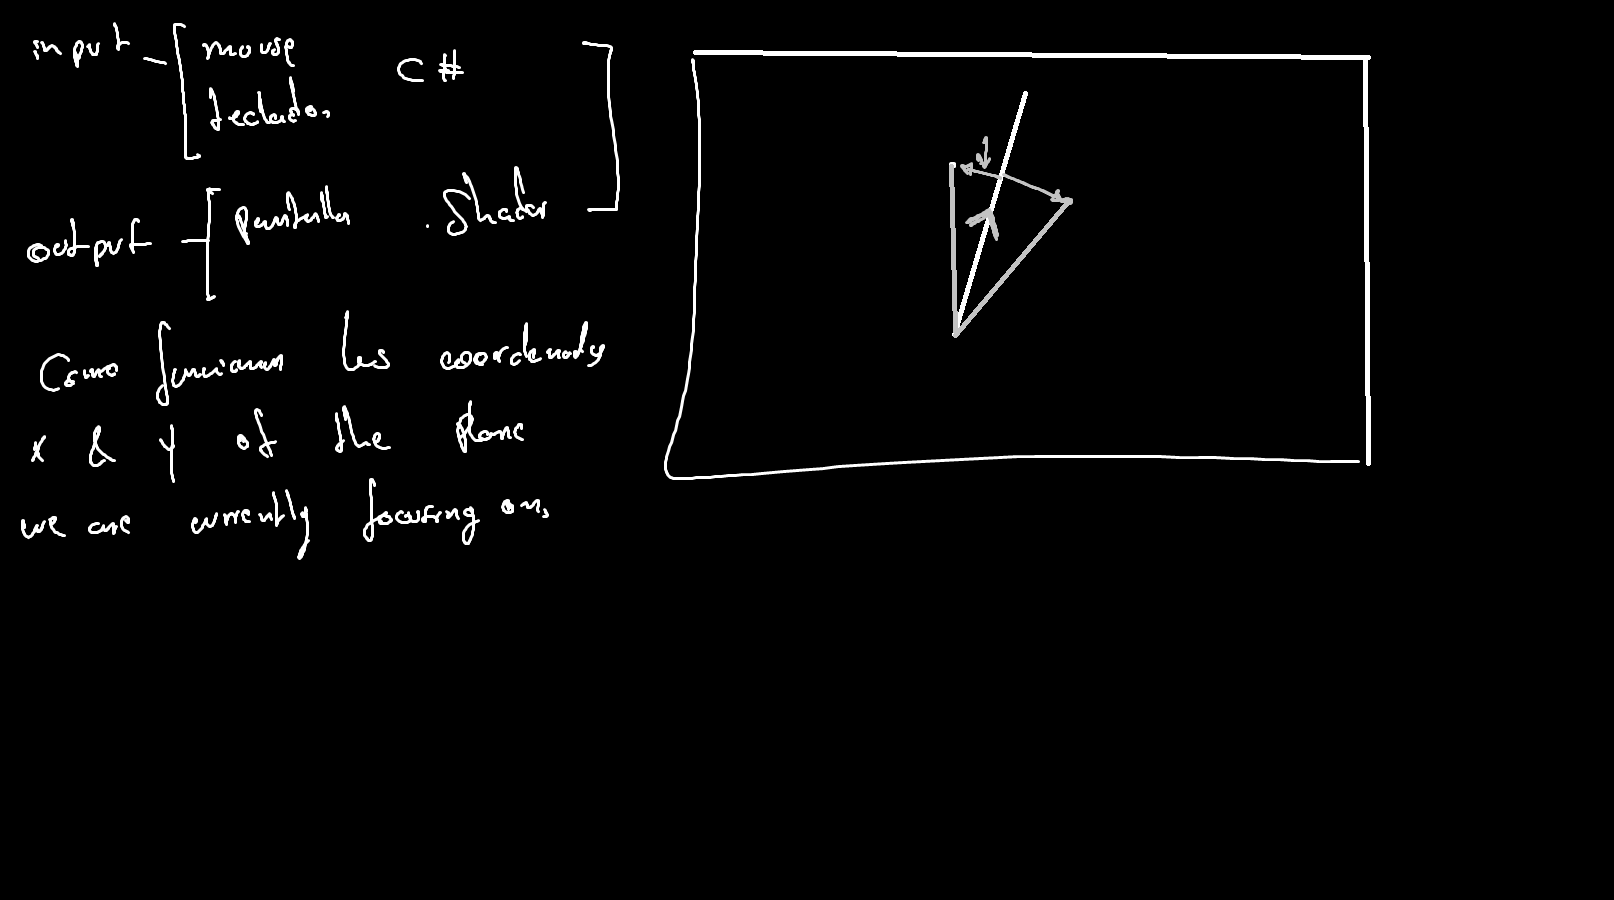 input mouse C#
teclado,
output pantalla . Shader
Como funcionan las coordenadas
x & y of the plane
we are currently focusing on,